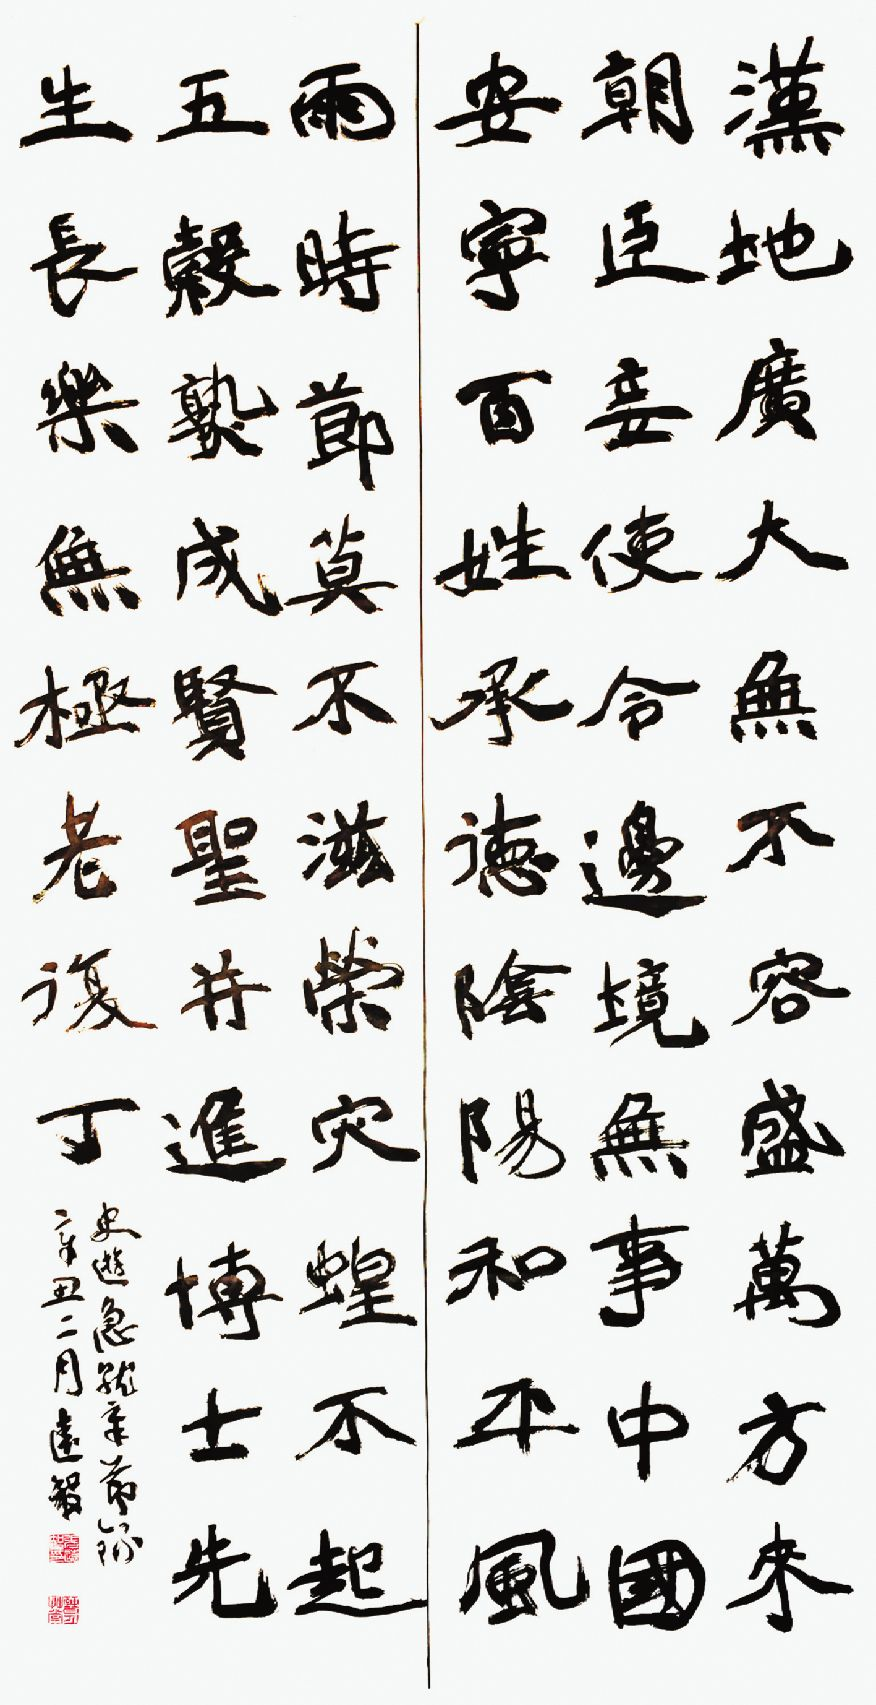 漢地廣大無不容盛萬方來
朝臣妾使令邊境無事中國
安寧百姓承德陰陽和平風
雨時節莫不滋榮灾蝗不起
五穀熟成賢聖并進博士先
生長樂無極老復丁
史游急就章節錄
辛丑二月遠毅